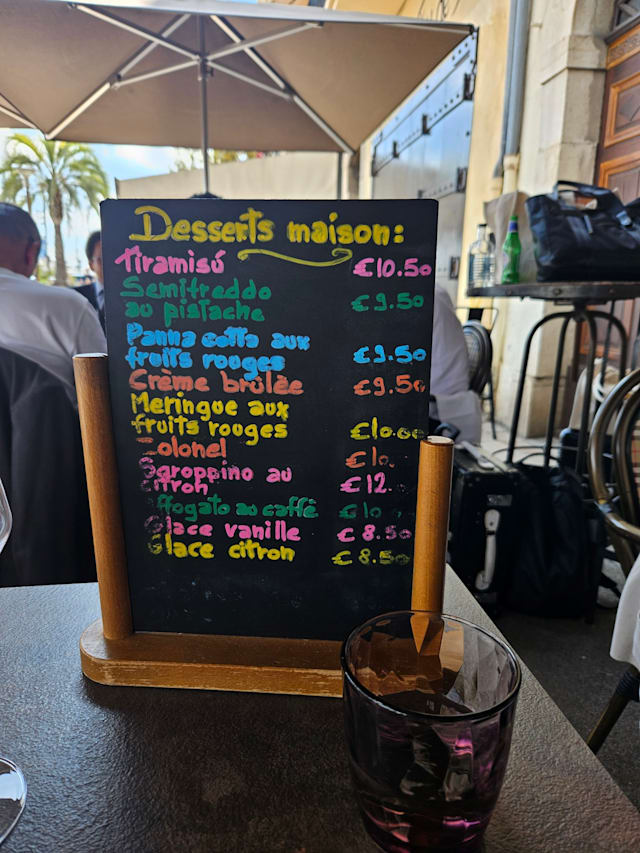 Desserts maison:
Tiramisú €10.50
Semifreddo
au pistache €9.50
Panna cotta aux
fruits rouges €9.50
Crème brûlée €9.50
Meringue aux
fruits rouges €10.00
Colonel €10.
Sgroppino au
citron €12.
Affogato au caffè €10
Glace vanille €8.50
Glace citron €8.50